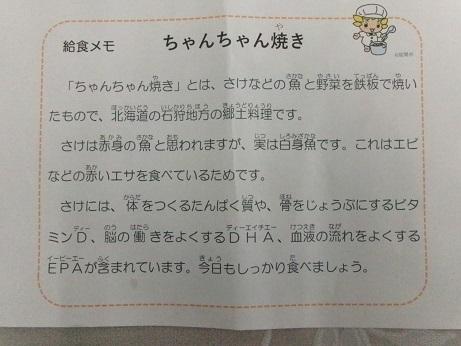 給食メモ ちゃんちゃん焼き
「ちゃんちゃん焼き」とは、さけなどの魚と野菜を鉄板で焼い
たもので、北海道の石狩地方の郷土料理です。
さけは赤身の魚と思われますが、実は白身魚です。これはエビ
などの赤いエサを食べているためです。
さけには、体をつくるたんぱく質や、骨をじょうぶにするビタ
ミンD、脳の働きをよくするDHA、血液の流れをよくする
EPAが含まれています。今日もしっかり食べましょう。